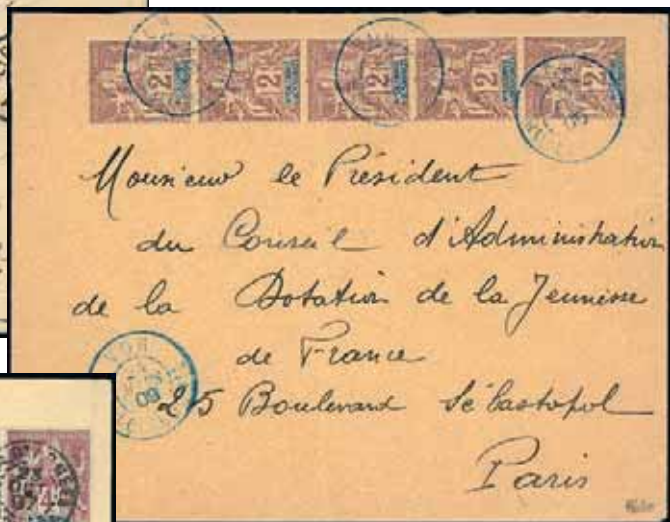 2 2 2 2 2
Monsieur le Président
du Conseil d'Administration
de la Dotation de la Jeunesse
de France
25 Boulevard Sébastopol
Paris